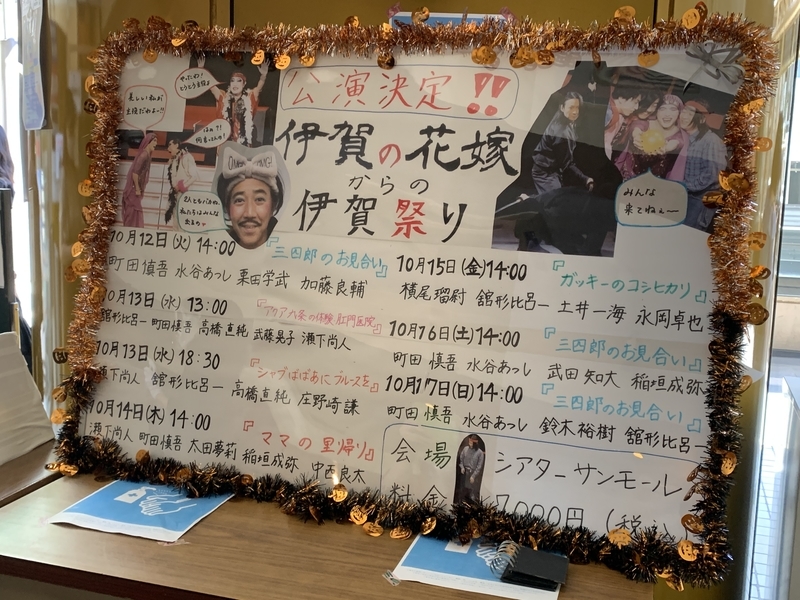 公演決定!!
伊賀の花嫁
からの
伊賀祭り
美しい私が
主役だわよー!!
やったわ!
とうとう主役よ
みんな
来てねぇー
10月12日(火) 14:00
『三四郎のお見合い』
町田慎吾 水谷あつし 栗田学武 加藤良輔
10月13日(水) 13:00
館形比呂一 町田慎吾 高橋直純 武藤晃子 瀬下尚人
10月13日(水) 18:30
『シャブばばあにブルースを』
瀬下尚人 館形比呂一 高橋直純 庄野崎謙
10月14日(木) 14:00
『ママの里帰り』
瀬下尚人 町田慎吾 太田夢莉 稲垣成弥 中西良太
10月15日(金) 14:00
『ガッキーのコシヒカリ』
横尾瑠尉 舘形比呂一 土井一海 永岡卓也
10月16日(土) 14:00
『三四郎のお見合い』
町田慎吾 水谷あつし 武田知大 稲垣成弥
10月17日(日) 14:00
『三四郎のお見合い』
町田慎吾 水谷あつし 鈴木裕樹 舘形比呂一
会場 シアターサンモール
料金 7000円 (税込)